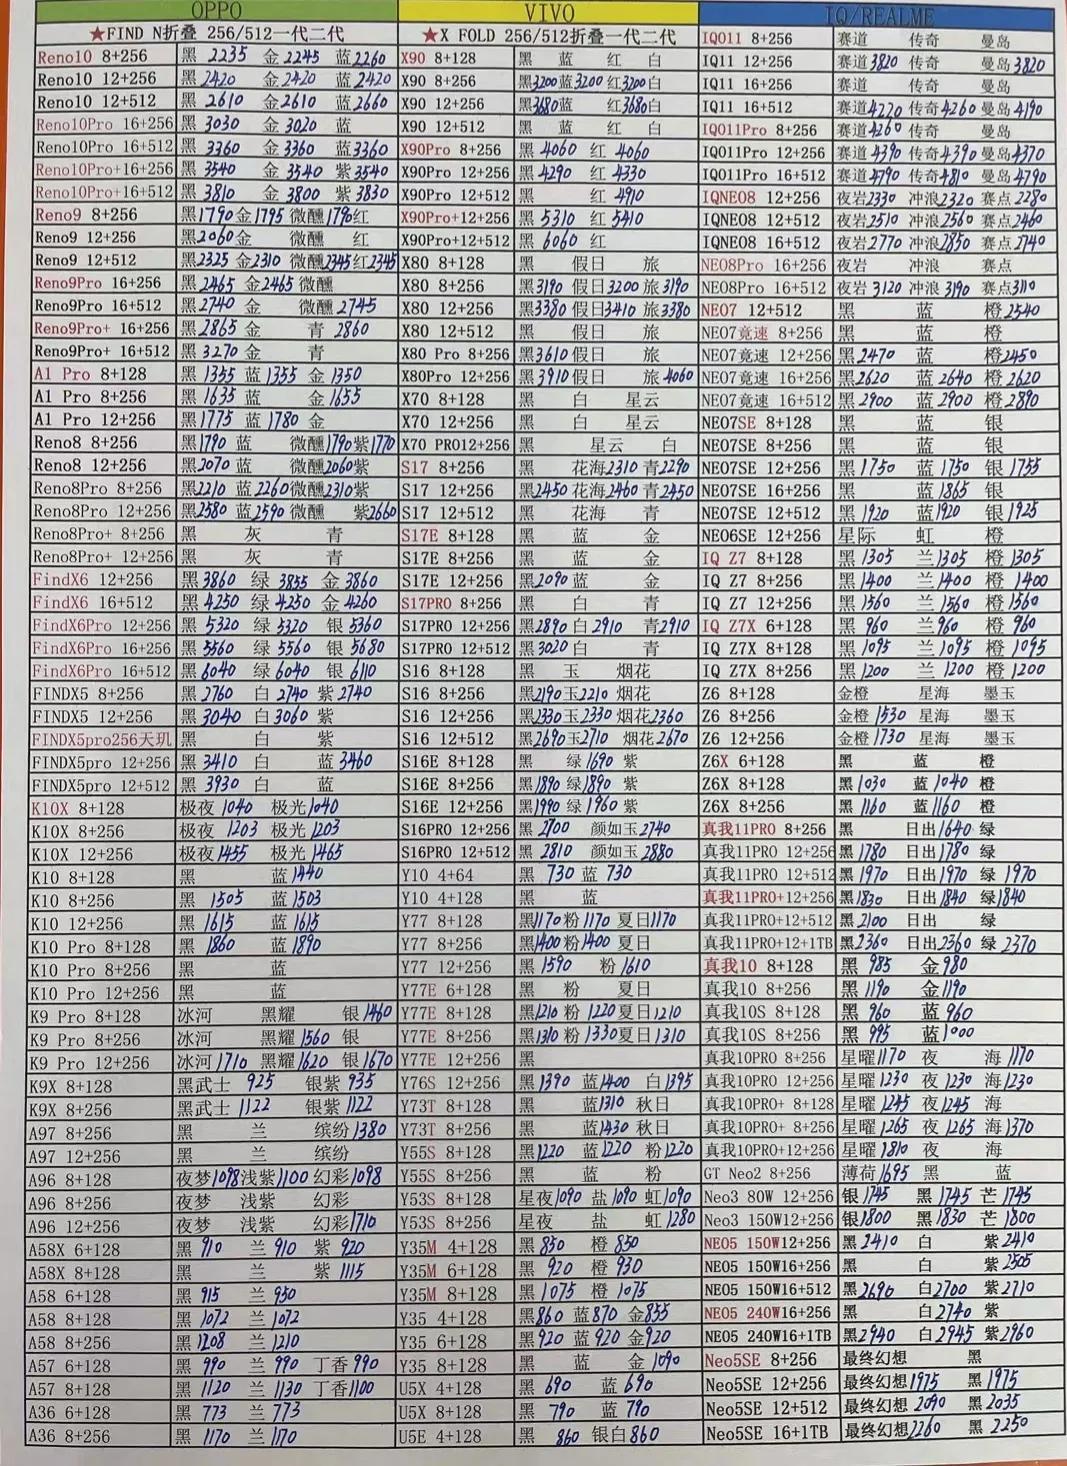 OPPO
★FIND N折叠 256/512一代二代
Reno10 8+256 黑 2235 金 2245 蓝 2260
Reno10 12+256 黑 2420 金 2420 蓝 2420
Reno10 12+512 黑 2610 金 2610 蓝 2660
Reno10Pro 16+256 黑 3030 金 3020 蓝
Reno10Pro 16+512 黑 3360 金 3360 蓝 3360
Reno10Pro+16+256 黑 3540 金 3540 紫 3540
Reno10Pro+16+512 黑 3810 金 3800 紫 3830
Reno9 8+256 黑 1790 金 1795 微醺 1790 红
Reno9 12+256 黑 2060 金 微醺 红
Reno9 12+512 黑 2325 金 2310 微醺 2345 红 2345
Reno9Pro 16+256 黑 2465 金 2465 微醺
Reno9Pro 16+512 黑 2740 金 微醺 2745
Reno9Pro+ 16+256 黑 2865 金 青 2860
Reno9Pro+ 16+512 黑 3270 金 青
A1 Pro 8+128 黑 1355 蓝 1355 金 1350
A1 Pro 8+256 黑 1635 蓝 金 1655
A1 Pro 12+256 黑 1775 蓝 1780 金
Reno8 8+256 黑 1790 蓝 微醺 1790 紫 1770
Reno8 12+256 黑 2070 蓝 微醺 2060 紫
Reno8Pro 8+256 黑 2210 蓝 2260 微醺 2310 紫
Reno8Pro 12+256 黑 2580 蓝 2590 微醺 紫 2660
Reno8Pro+ 8+256 黑 灰 青
Reno8Pro+ 12+256 黑 灰 青
FindX6 12+256 黑 3860 绿 3855 金 3860
FindX6 16+512 黑 4250 绿 4250 金 4260
FindX6Pro 12+256 黑 5320 绿 5320 银 5360
FindX6Pro 16+256 黑 5560 绿 5560 银 5680
FindX6Pro 16+512 黑 6040 绿 6040 银 6110
FINDX5 8+256 黑 2760 白 2740 紫 2740
FINDX5 12+256 黑 3040 白 3060 紫
FINDX5pro256天玑 黑 白 紫
FINDX5pro 12+256 黑 3410 白 蓝 3460
FINDX5pro 12+512 黑 3930 白 蓝
K10X 8+128 极夜 1040 极光 1040
K10X 8+256 极夜 1203 极光 1203
K10X 12+256 极夜 1455 极光 1465
K10 8+128 黑 蓝 1440
K10 8+256 黑 1505 蓝 1503
K10 12+256 黑 1615 蓝 1615
K10 Pro 8+128 黑 1860 蓝 1890
K10 Pro 8+256 黑 蓝
K10 Pro 12+256 黑 蓝
K9 Pro 8+128 冰河 黑耀 银 1460
K9 Pro 8+256 冰河 黑耀 1560 银
K9 Pro 12+256 冰河 1710 黑耀 1620 银 1670
K9X 8+128 黑武士 925 银紫 935
K9X 8+256 黑武士 1122 银紫 1122
A97 8+256 黑 兰 缤纷 1380
A97 12+256 黑 兰 缤纷
A96 8+128 夜梦 1098 浅紫 1100 幻彩 1098
A96 8+256 夜梦 浅紫 幻彩
A96 12+256 夜梦 浅紫 幻彩 1710
A58X 6+128 黑 910 兰 910 紫 920
A58X 8+128 黑 兰 紫 1115
A58 6+128 黑 915 兰 950
A58 8+128 黑 1072 兰 1072
A58 8+256 黑 1208 兰 1210
A57 6+128 黑 990 兰 990 丁香 990
A57 8+128 黑 1120 兰 1130 丁香 1100
A36 6+128 黑 773 兰 773
A36 8+256 黑 1170 兰 1170
VIVO
★X FOLD 256/512折叠一代二代
X90 8+128 黑 蓝 红 白
X90 8+256 黑 3200 蓝 3200 红 3200 白
X90 12+256 黑 3680 蓝 红 3680 白
X90 12+512 黑 蓝 红 白
X90Pro 8+256 黑 4060 红 4060
X90Pro 12+256 黑 4290 红 4330
X90Pro 12+512 黑 红 4910
X90Pro+12+256 黑 5310 红 5410
X90Pro+12+512 黑 6060 红
X80 8+128 黑 假日 旅
X80 8+256 黑 3190 假日 3200 旅 3190
X80 12+256 黑 3380 假日 3410 旅 3380
X80 12+512 黑 假日 旅
X80 Pro 8+256 黑 3610 假日 旅
X80Pro 12+256 黑 3910 假日 旅 4060
X70 8+128 黑 白 星云
X70 12+256 黑 白 星云
X70 PRO12+256 黑 星云 白
S17 8+256 黑 花海 2310 青 2290
S17 12+256 黑 2450 花海 2460 青 2450
S17 12+512 黑 花海 青
S17E 8+128 黑 蓝 金
S17E 8+256 黑 蓝 金
S17E 12+256 黑 2090 蓝 金
S17PRO 8+256 黑 白 青
S17PRO 12+256 黑 2890 白 2910 青 2910
S17PRO 12+512 黑 3020 白 青
S16 8+128 黑 玉 烟花
S16 8+256 黑 2190 玉 2210 烟花
S16 12+256 黑 2330 玉 2330 烟花 2360
S16 12+512 黑 2690 玉 2710 烟花 2670
S16E 8+128 黑 绿 1690 紫
S16E 8+256 黑 1890 绿 1890 紫
S16E 12+256 黑 1990 绿 1960 紫
S16PRO 12+256 黑 2700 颜如玉 2740
S16PRO 12+512 黑 2810 颜如玉 2880
Y10 4+64 黑 730 蓝 730
Y10 4+128 黑 蓝
Y77 8+128 黑 1170 粉 1170 夏日 1170
Y77 8+256 黑 1400 粉 1400 夏日
Y77 12+256 黑 1590 粉 1610
Y77E 6+128 黑 粉 夏日
Y77E 8+128 黑 1210 粉 1220 夏日 1210
Y77E 8+256 黑 1310 粉 1330 夏日 1310
Y77E 12+256 黑
Y76S 12+256 黑 1390 蓝 1400 白 1395
Y73T 8+128 黑 蓝 1310 秋日
Y73T 8+256 黑 蓝 1430 秋日
Y55S 8+128 黑 1220 蓝 1220 粉 1220
Y55S 8+256 黑 蓝 粉
Y53S 8+128 星夜 1090 盐 1090 虹 1090
Y53S 8+256 星夜 盐 虹 1280
Y35M 4+128 黑 850 橙 850
Y35M 6+128 黑 920 橙 930
Y35M 8+128 黑 1075 橙 1075
Y35 4+128 黑 860 蓝 870 金 855
Y35 6+128 黑 920 蓝 920 金 920
Y35 8+128 黑 蓝 金 1090
U5X 4+128 黑 690 蓝 690
U5X 8+128 黑 790 蓝 790
U5E 4+128 黑 860 银白 860
IQ/REALME
IQO11 8+256 赛道 传奇 曼岛
IQ11 12+256 赛道 3820 传奇 曼岛 3820
IQ11 16+256 赛道 传奇 曼岛
IQ11 16+512 赛道 4220 传奇 4260 曼岛 4190
IQO11Pro 8+256 赛道 4260 传奇 曼岛
IQO11Pro 12+256 赛道 4390 传奇 4390 曼岛 4370
IQO11Pro 16+512 赛道 4790 传奇 4810 曼岛 4790
IQNEO8 12+256 夜岩 2330 冲浪 2320 赛点 2280
IQNEO8 12+512 夜岩 2510 冲浪 2560 赛点 2460
IQNEO8 16+512 夜岩 2770 冲浪 2850 赛点 2740
NEO8Pro 16+256 夜岩 冲浪 赛点
NEO8Pro 16+512 夜岩 3120 冲浪 3190 赛点 3110
NEO7 12+512 黑 蓝 橙 2540
NEO7竞速 8+256 黑 蓝 橙
NEO7竞速 12+256 黑 2470 蓝 橙 2450
NEO7竞速 16+256 黑 2620 蓝 2640 橙 2620
NEO7竞速 16+512 黑 2900 蓝 2900 橙 2890
NEO7SE 8+128 黑 蓝 银
NEO7SE 8+256 黑 蓝 银
NEO7SE 12+256 黑 1750 蓝 1750 银 1755
NEO7SE 16+256 黑 蓝 1865 银
NEO7SE 12+512 黑 1920 蓝 1920 银 1925
NEO6SE 12+256 星际 虹 橙
IQ Z7 8+128 黑 1305 兰 1305 橙 1305
IQ Z7 8+256 黑 1400 兰 1400 橙 1400
IQ Z7 12+256 黑 1560 兰 1560 橙 1560
IQ Z7X 6+128 黑 960 兰 960 橙 960
IQ Z7X 8+128 黑 1095 兰 1095 橙 1095
IQ Z7X 8+256 黑 1200 兰 1200 橙 1200
Z6 8+128 金橙 星海 墨玉
Z6 8+256 金橙 1530 星海 墨玉
Z6 12+256 金橙 1730 星海 墨玉
Z6X 6+128 黑 蓝 橙
Z6X 8+128 黑 1030 蓝 1040 橙
Z6X 8+256 黑 1160 蓝 1160 橙
真我11PRO 8+256 黑 日出 1640 绿
真我11PRO 12+256 黑 1780 日出 1780 绿
真我11PRO 12+512 黑 1970 日出 1970 绿 1970
真我11PRO+12+256 黑 1830 日出 1840 绿 1840
真我11PRO+12+512 黑 2100 日出 绿
真我11PRO+12+1TB 黑 2360 日出 2360 绿 2370
真我10 8+128 黑 985 金 980
真我10 8+256 黑 1190 金 1190
真我10S 8+128 黑 960 蓝 960
真我10S 8+256 黑 995 蓝 1000
真我10PRO 8+256 星曜 1170 夜 海 1170
真我10PRO 12+256 星曜 1230 夜 1230 海 1230
真我10PRO+ 8+128 星曜 1245 夜 1245 海
真我10PRO+ 8+256 星曜 1265 夜 1265 海 1370
真我10PRO+12+256 星曜 1810 夜 海
GT Neo2 8+256 薄荷 1695 黑 蓝
Neo3 80W 12+256 银 1745 黑 1745 芒 1745
Neo3 150W12+256 银 1800 黑 1830 芒 1800
NEO5 150W12+256 黑 2410 白 紫 2410
NEO5 150W16+256 黑 白 紫 2505
NEO5 150W16+512 黑 2690 白 2700 紫 2710
NEO5 240W16+256 黑 白 2740 紫
NEO5 240W16+1TB 黑 2940 白 2945 紫 2960
Neo5SE 8+256 最终幻想 黑
Neo5SE 12+256 最终幻想 1975 黑 1975
Neo5SE 12+512 最终幻想 2090 黑 2035
Neo5SE 16+1TB 最终幻想 2260 黑 2250